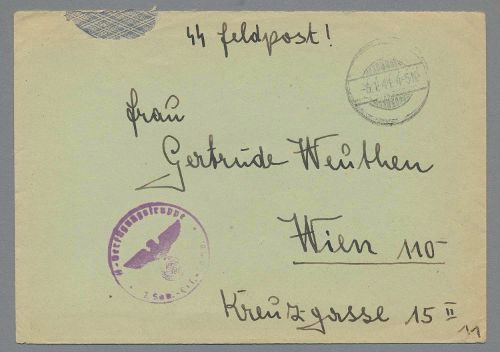 SS Feldpost!
Frau
Gertrude Weuthen
Wien 110
Kreuzgasse 15 II
SS-Verfügungstruppe